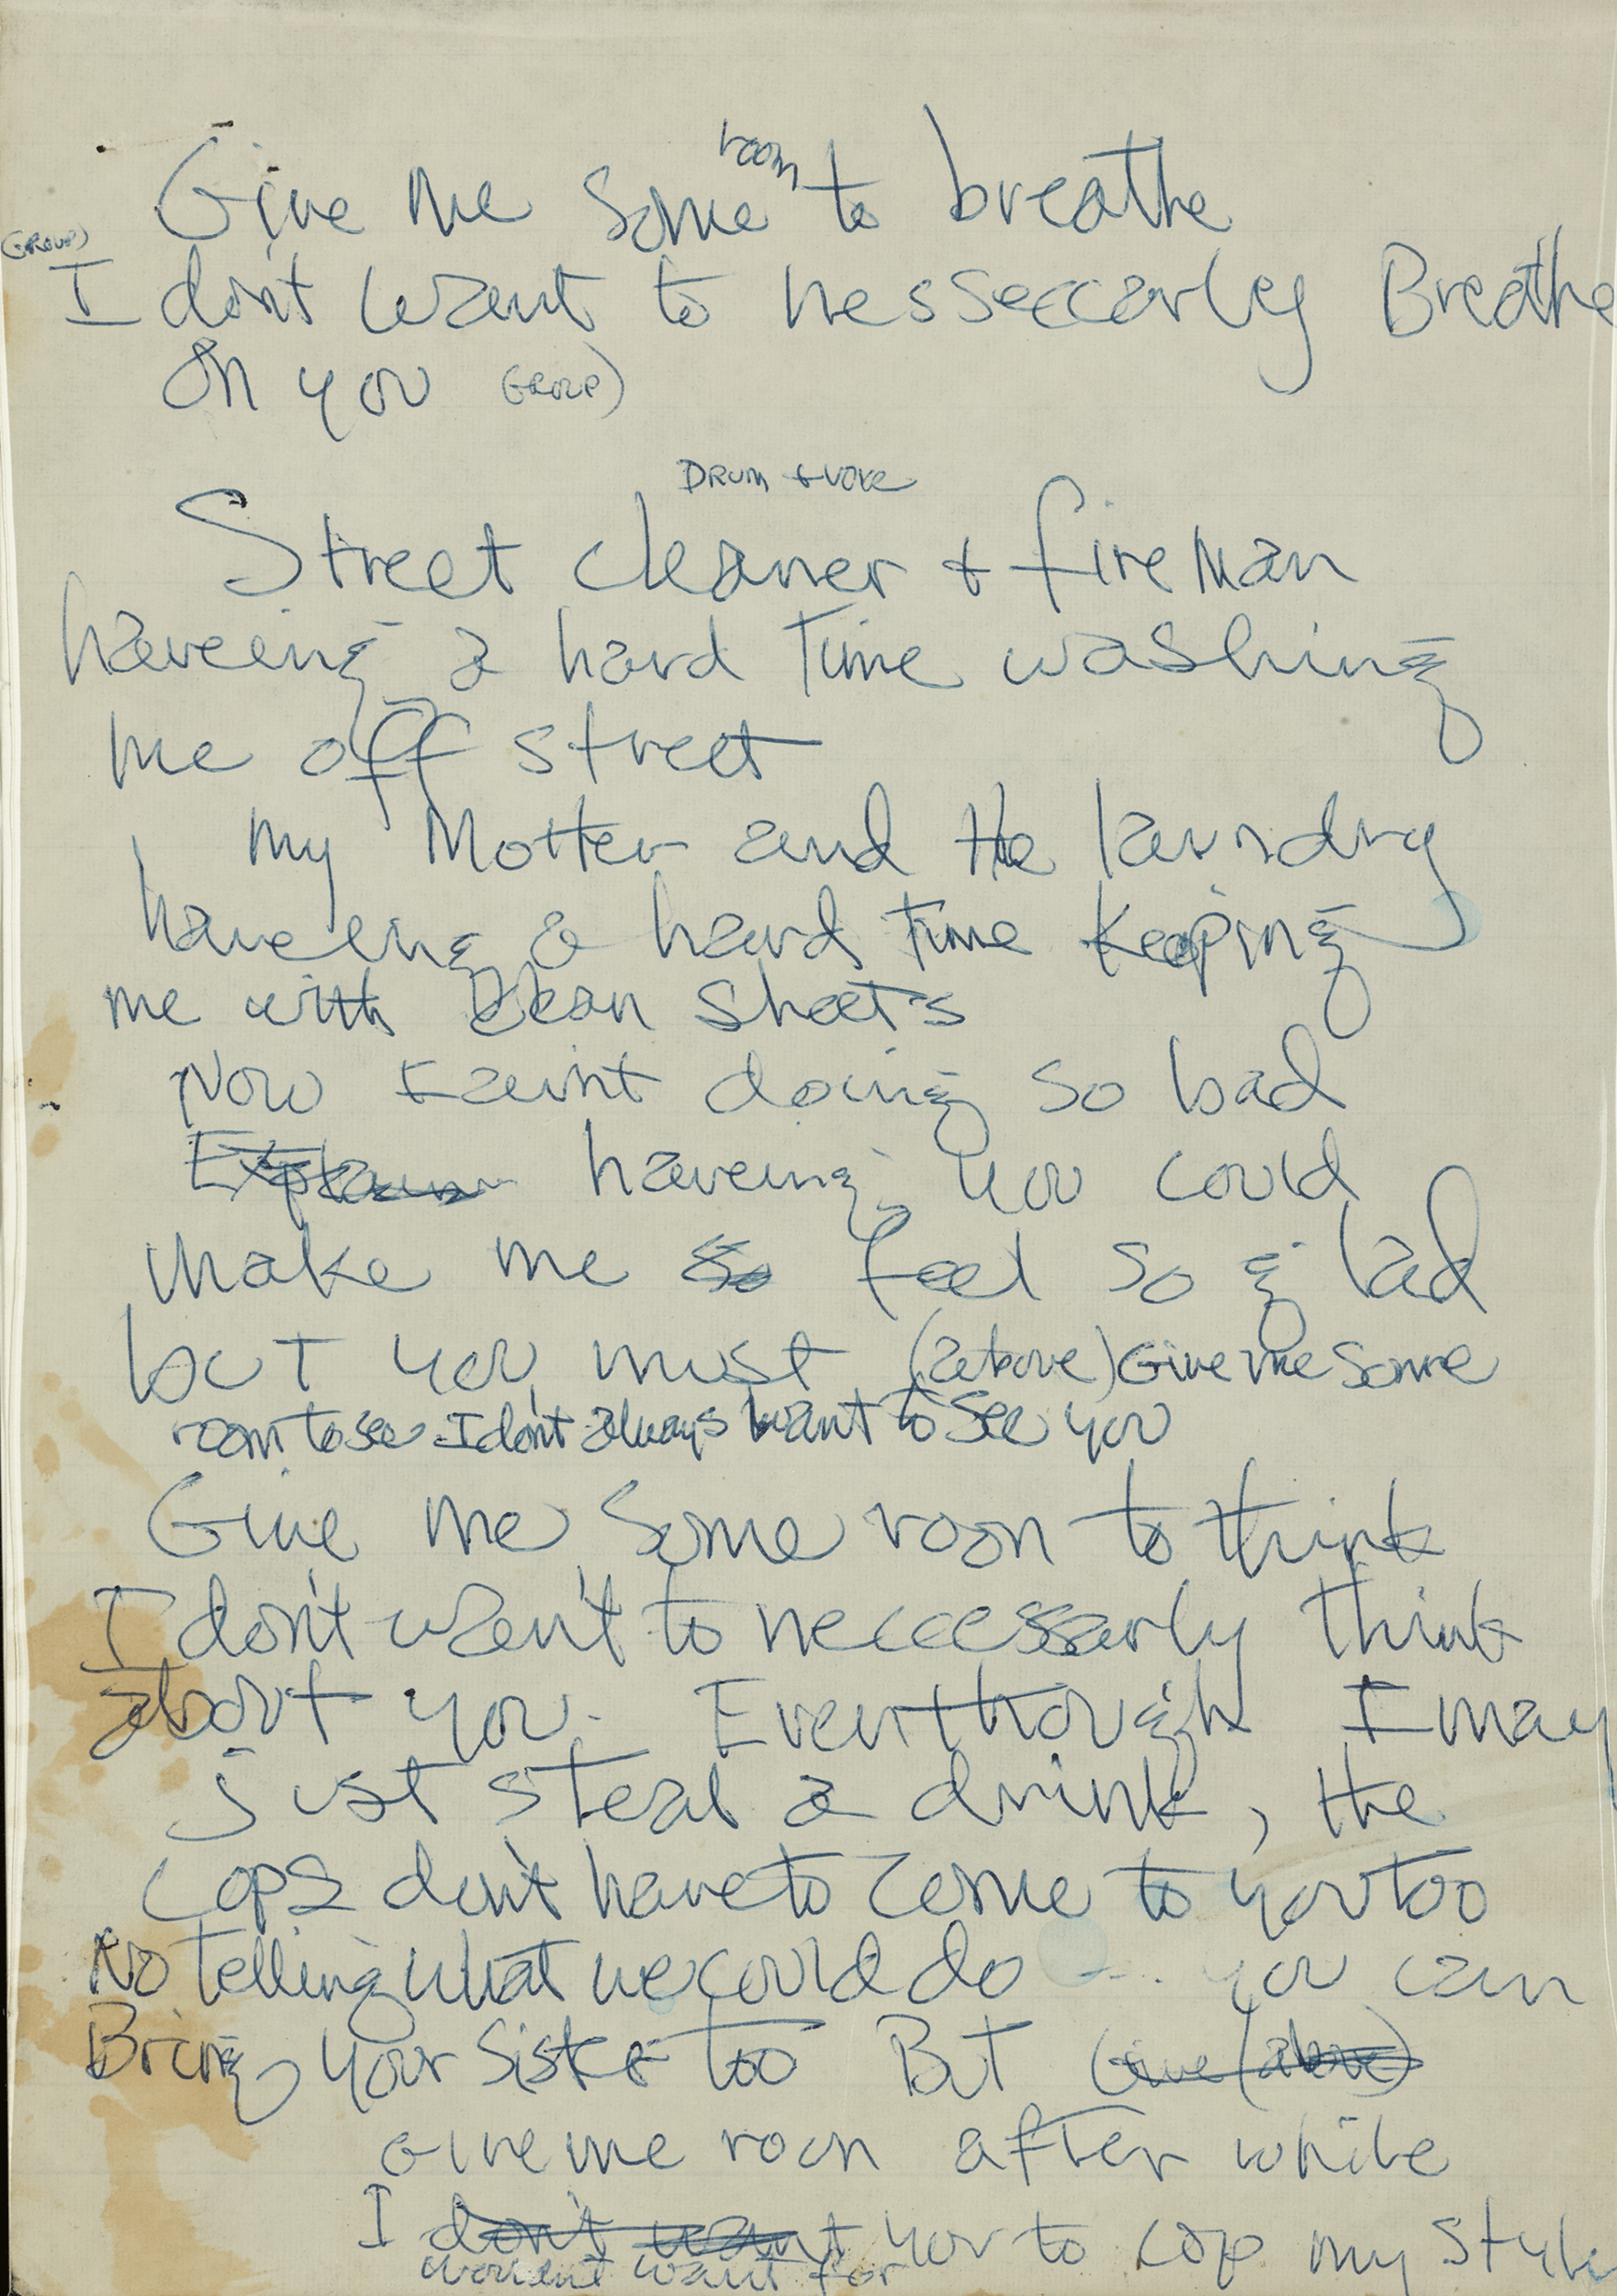 room
Give me some to breathe
(GROUP)
I don't want to nesseccarly Breathe
on you GROUP)
DRUM + VOICE
Street cleaner + fireman
haveeing a hard Time washing
me off street
my Mother and the laundry
haveeing a hard Time keeping
me with clean sheets
Now I ain't doing so bad
Explain haveing you could
make me so feel so glad
but you must (above) Give me some
room to see I don't always want to see you
Give me some room to think
I don't wan't to neccessarly think
about you. Eventhough I may
just steal a drink, the
cops don't have to come to you too
No telling what we could do --.. you can
Bring your sister too But Give (above)
Give me room after while
I don't want you to cop my style
want for